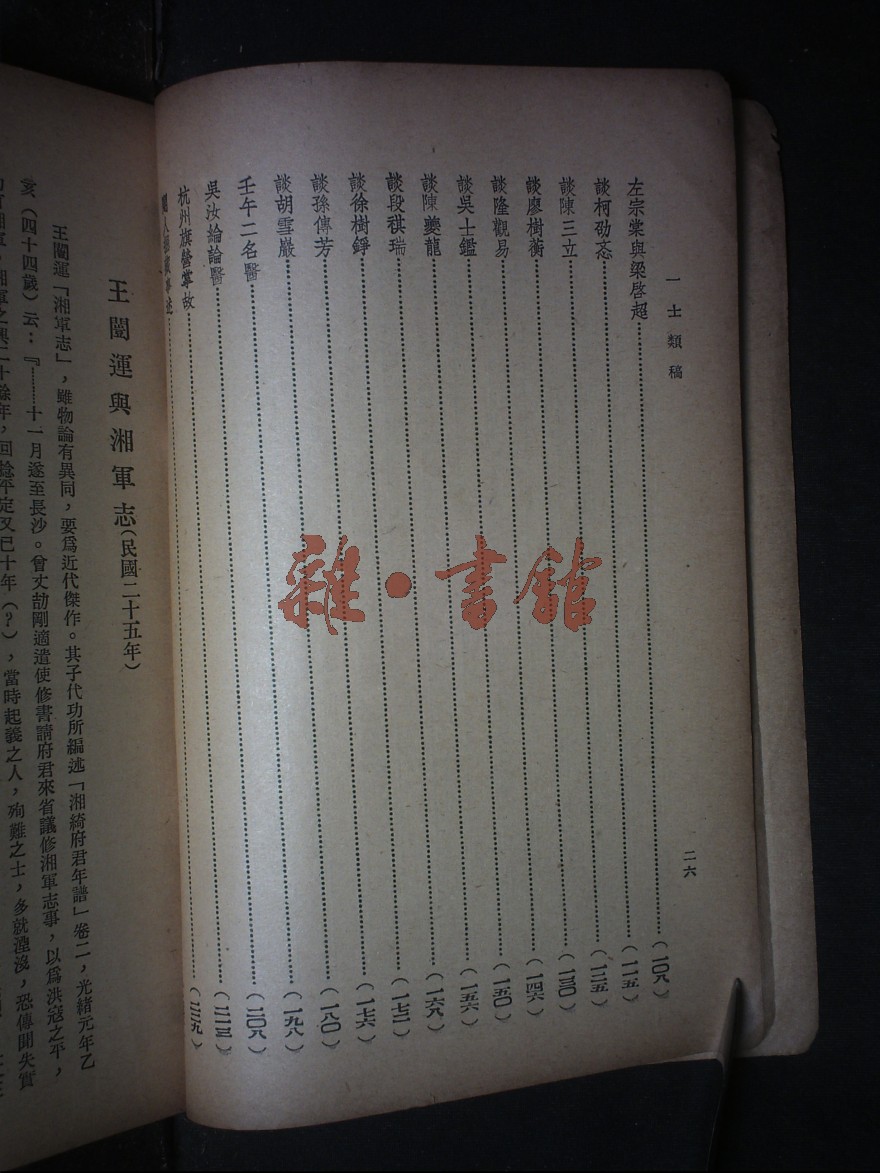 一士類稿
二六
左宗棠與梁啓超……(一〇八)
談柯劭忞……(一一五)
談陳三立……(一二五)
談廖樹蘅……(一三〇)
談隆觀易……(一四六)
談吳士鑑……(一五〇)
談陳夔龍……(一五六)
談段祺瑞……(一六八)
談徐樹錚……(一七二)
談孫傳芳……(一七六)
談胡雪巖……(一八〇)
壬午二名醫……(一九八)
吳汝綸論醫……(二〇八)
杭州旗營掌故……(二一三)
王闓運與湘軍志(民國二十五年)
王闓運「湘軍志」,雖物論有異同,要爲近代傑作。其子代功所編述「湘綺府君年譜」卷二,光緒元年乙
亥(四十四歲)云:『……十一月遂至長沙。曾丈劼剛適遣使修書請府君來省議修湘軍志事,以爲洪寇之平,
湘軍之興二十餘年,回捻平定又已十年(?),當時起義之人,殉難之士,多就湮沒,恐傳聞失實
雜·書館